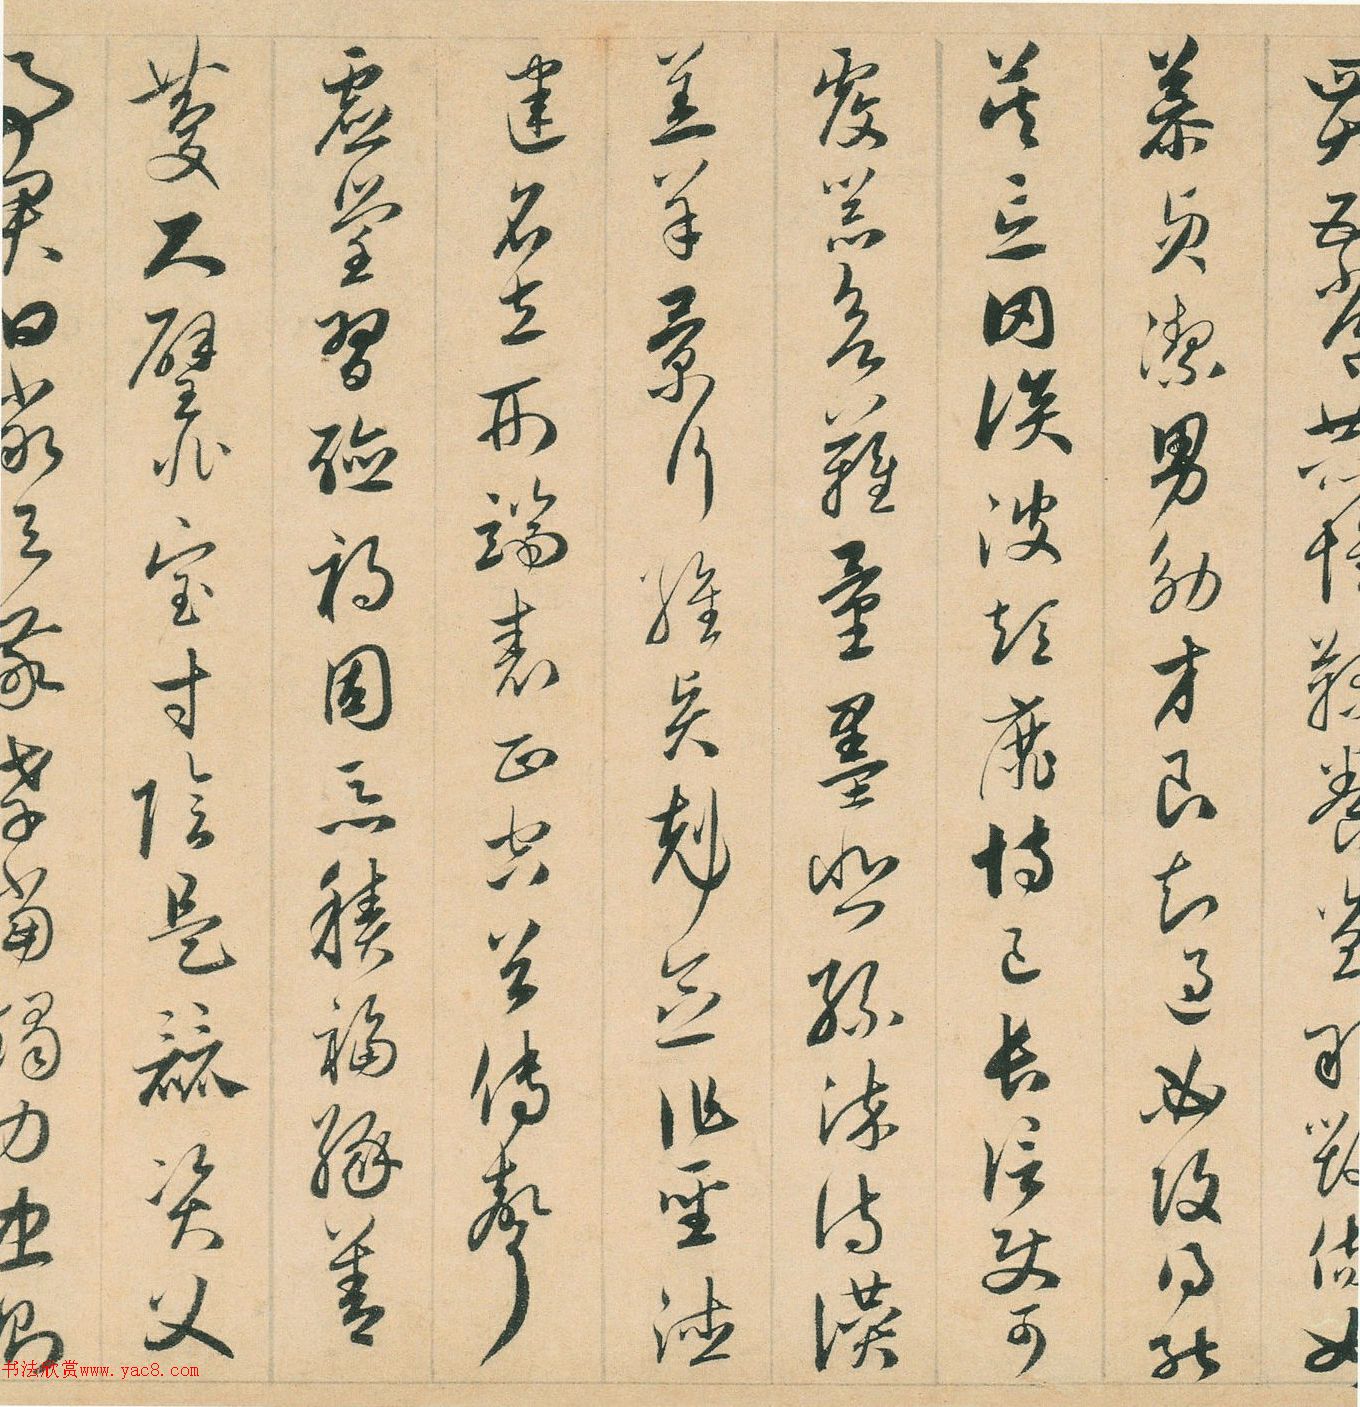 四大五常恭惟鞠養豈敢毀傷女
慕貞潔男效才良知過必改得能
莫忘罔談彼短靡恃己長信使可
覆器欲難量墨悲絲染詩讚
羔羊景行維賢剋念作聖德
建名立形端表正空谷傳聲
虛堂習聽禍因惡積福緣善
慶尺璧非寶寸陰是競資父
事君曰嚴與敬孝當竭力忠則
书法欣赏www.yac8.com